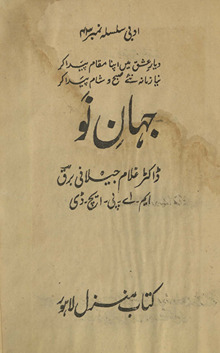 ادبی سلسلہ نمبر ۴۳
دیارِ عشق میں اپنا مقام پیدا کر
نیا زمانہ نئے صبح و شام پیدا کر
جہانِ نَو
ڈاکٹر غلام جیلانی برق
ایم-اے-پی-ایچ-ڈی
کتاب منزل لاہور